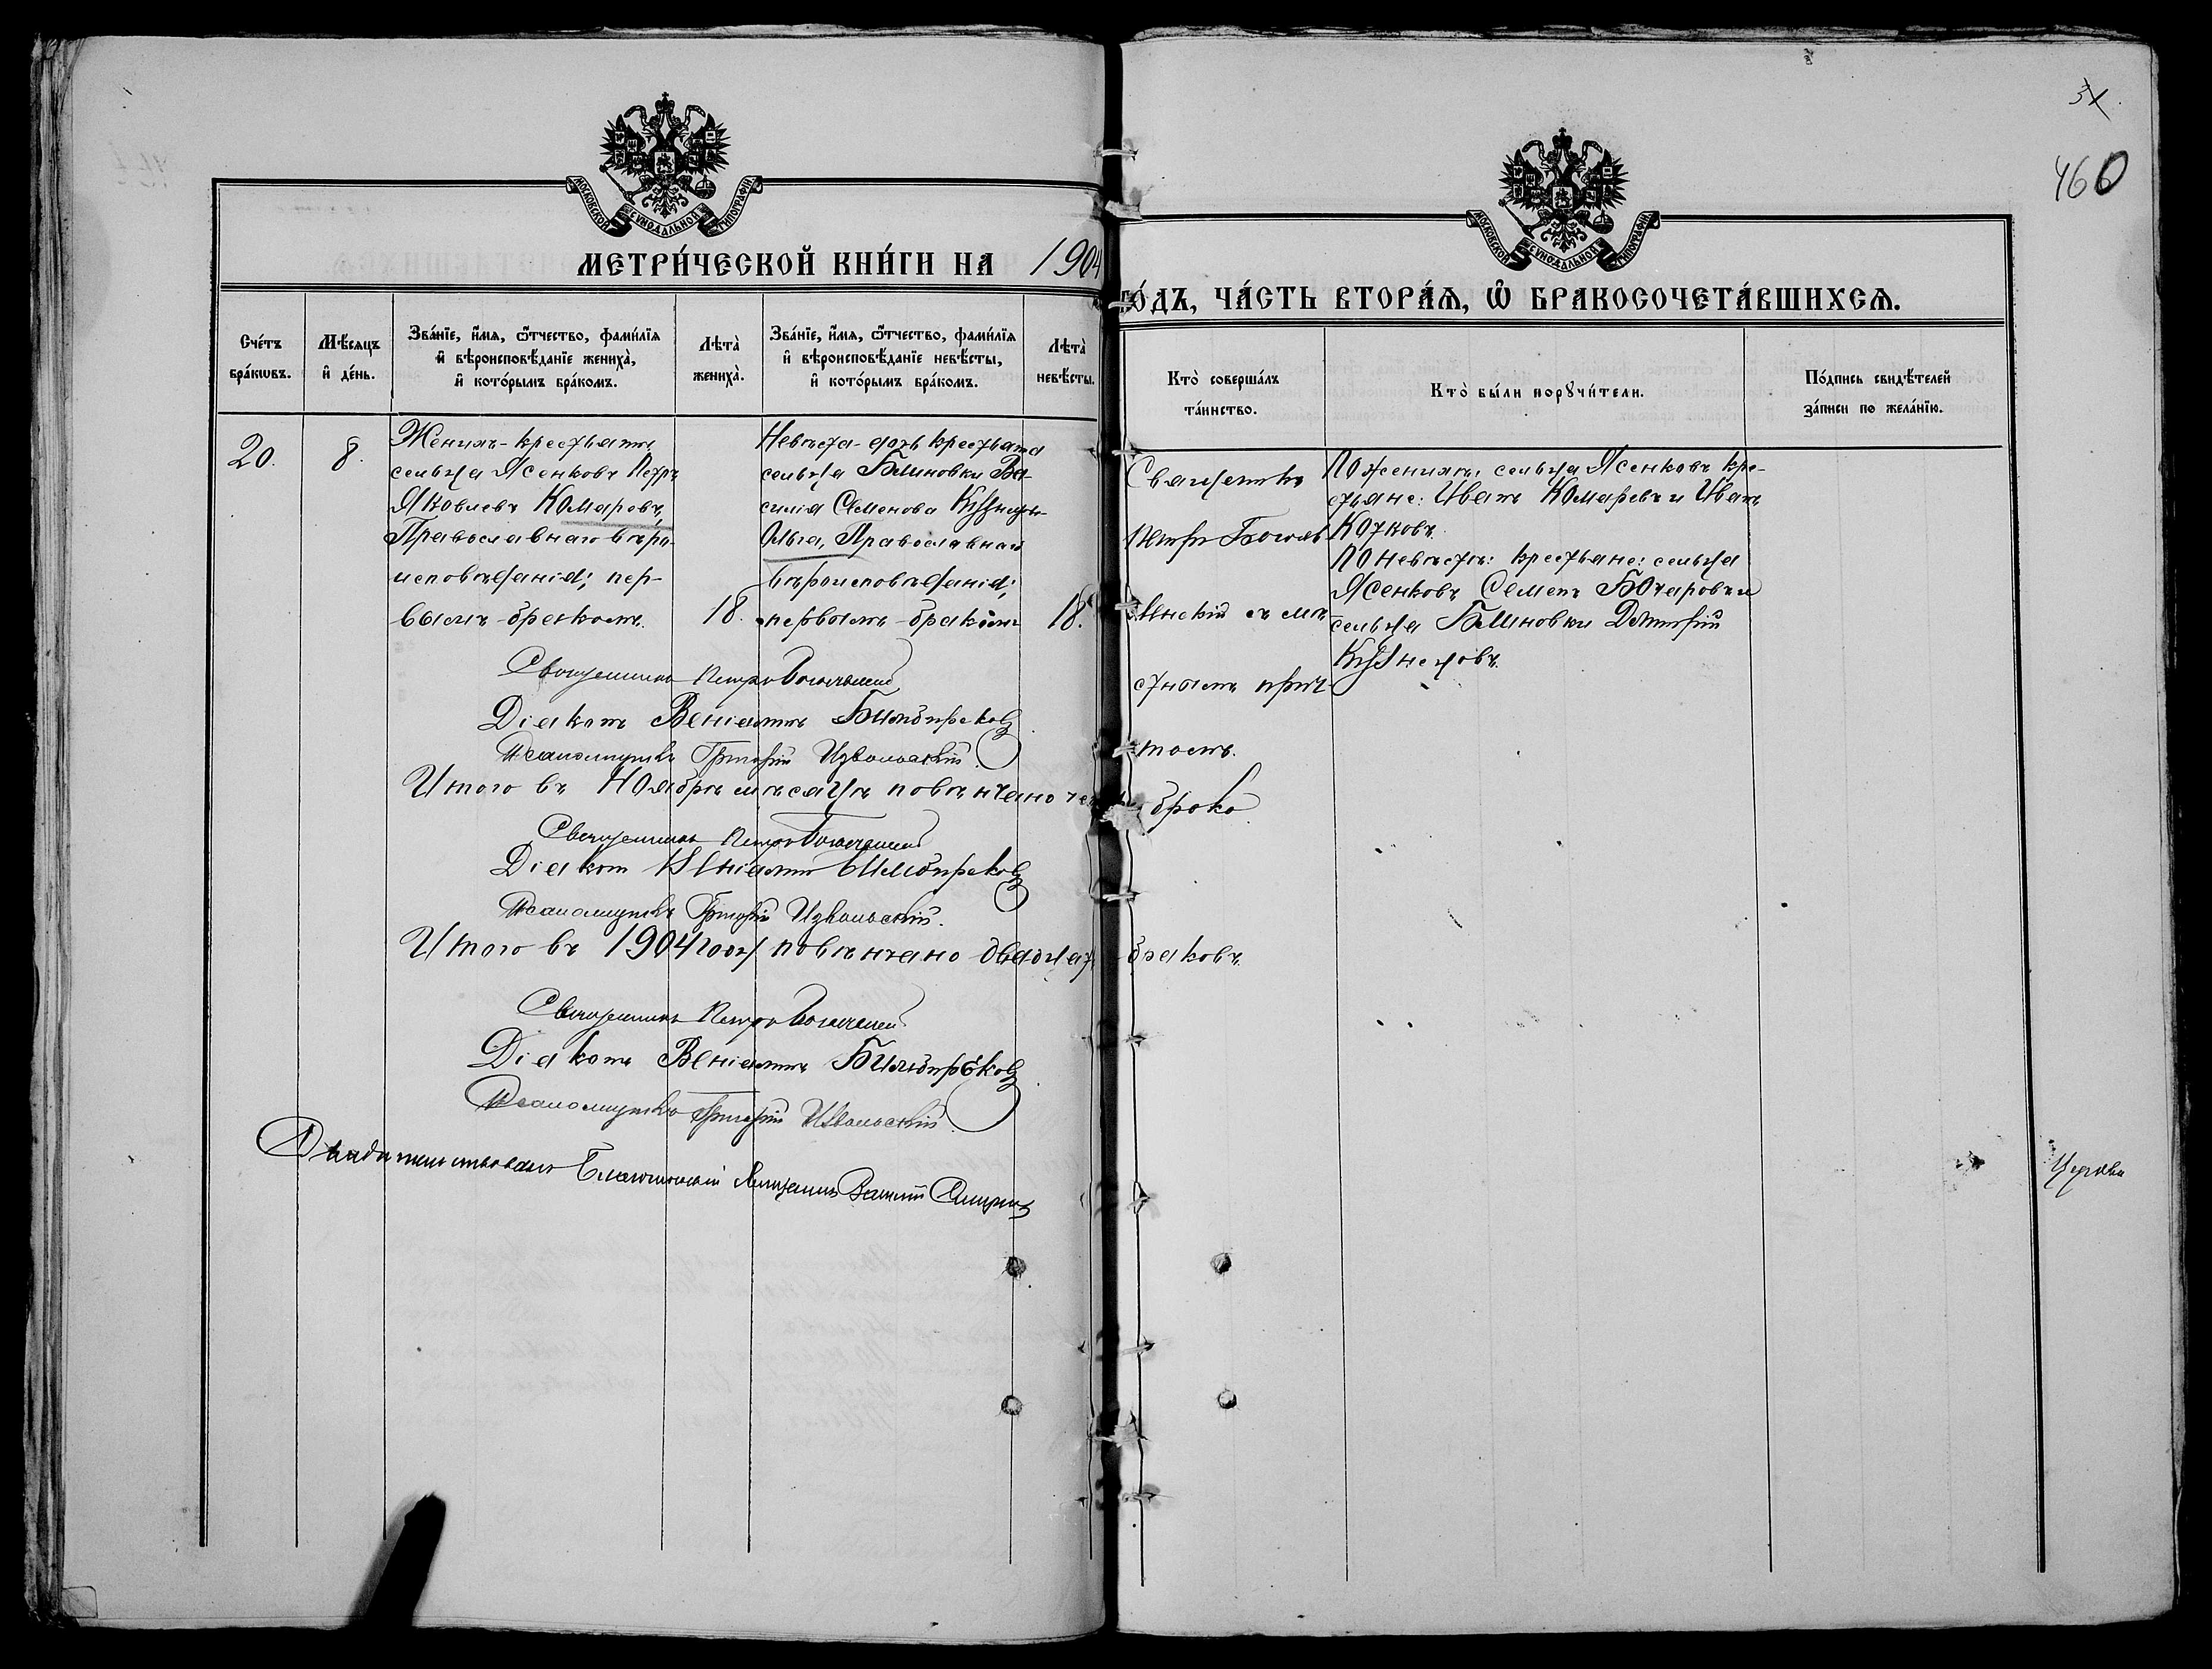 31.
460
МОСКОВСКОЙ СѴНОДАЛЬНОЙ ТИПОГРАФІИ
МОСКОВСКОЙ СѴНОДАЛЬНОЙ ТИПОГРАФІИ
МЕТРИ́ЧЕСКОЙ КНИ́ГИ НА 1904
ГО́ДЪ, ЧА́СТЬ ВТОРА́Ѧ, Ѡ҆ БРАКОСОЧЕТА́ВШИХСѦ.
Сче́тъ бра́кѡвъ.
Мѣ́сѧцъ и҆ де́нь.
Зва́нїе, и҆́мѧ, ѻ҆́тчество, фами́лїѧ
и҆ вѣроисповѣ́данїе жениха̀,
и҆ кото́рымъ бра́комъ.
Лѣта̀ жениха̀.
Зва́нїе, и҆́мѧ, ѻ҆́тчество, фами́лїѧ
и҆ вѣроисповѣ́данїе невѣ́сты,
и҆ кото́рымъ бра́комъ.
Лѣта̀ невѣ́сты.
Кто̀ соверша́лъ та́инство.
Кто̀ бы́ли порꙋчи́тели.
По́дпись свидѣ́телей за́писи по жела́нїю.
20.
8.
Женихъ - крестьянинъ
сельца Ясенковъ Петръ
Яковлевъ Комаровъ,
Православнаго вѣро-
исповѣданія; пер-
вымъ бракомъ.
18.
Невѣста - дочь крестьянина
сельца Блиновки Ва-
силія Семенова Кузнецова
Ольга, Православнаго
вѣроисповѣданія;
первымъ бракомъ
18.
Священникъ
Петръ Богояв-
ленскій съ мѣ-
стнымъ прич-
томъ.
По женихѣ: сельца Ясенковъ кре-
стьяне: Иванъ Комаровъ и Иванъ
Котковъ.
По невѣстѣ: крестьяне: сельца
Ясенковъ Семенъ Бочаровъ и
сельца Блиновки Дмитрій
Кузнецовъ.
Священникъ Петръ Богоявленскій
Діаконъ Веніаминъ
Псаломщикъ Григорій Извольскій.
Итого въ Ноябрѣ мѣсяцѣ повѣнчано брака.
Священникъ Петръ Богоявленскій
Діаконъ Веніаминъ
Псаломщикъ Григорій Извольскій.
Итого въ 1904 году повѣнчано двадцать браковъ.
Священникъ Петръ Богоявленскій
Діаконъ Веніаминъ
Псаломщикъ Григорій Извольскій.
Благочинный Священникъ